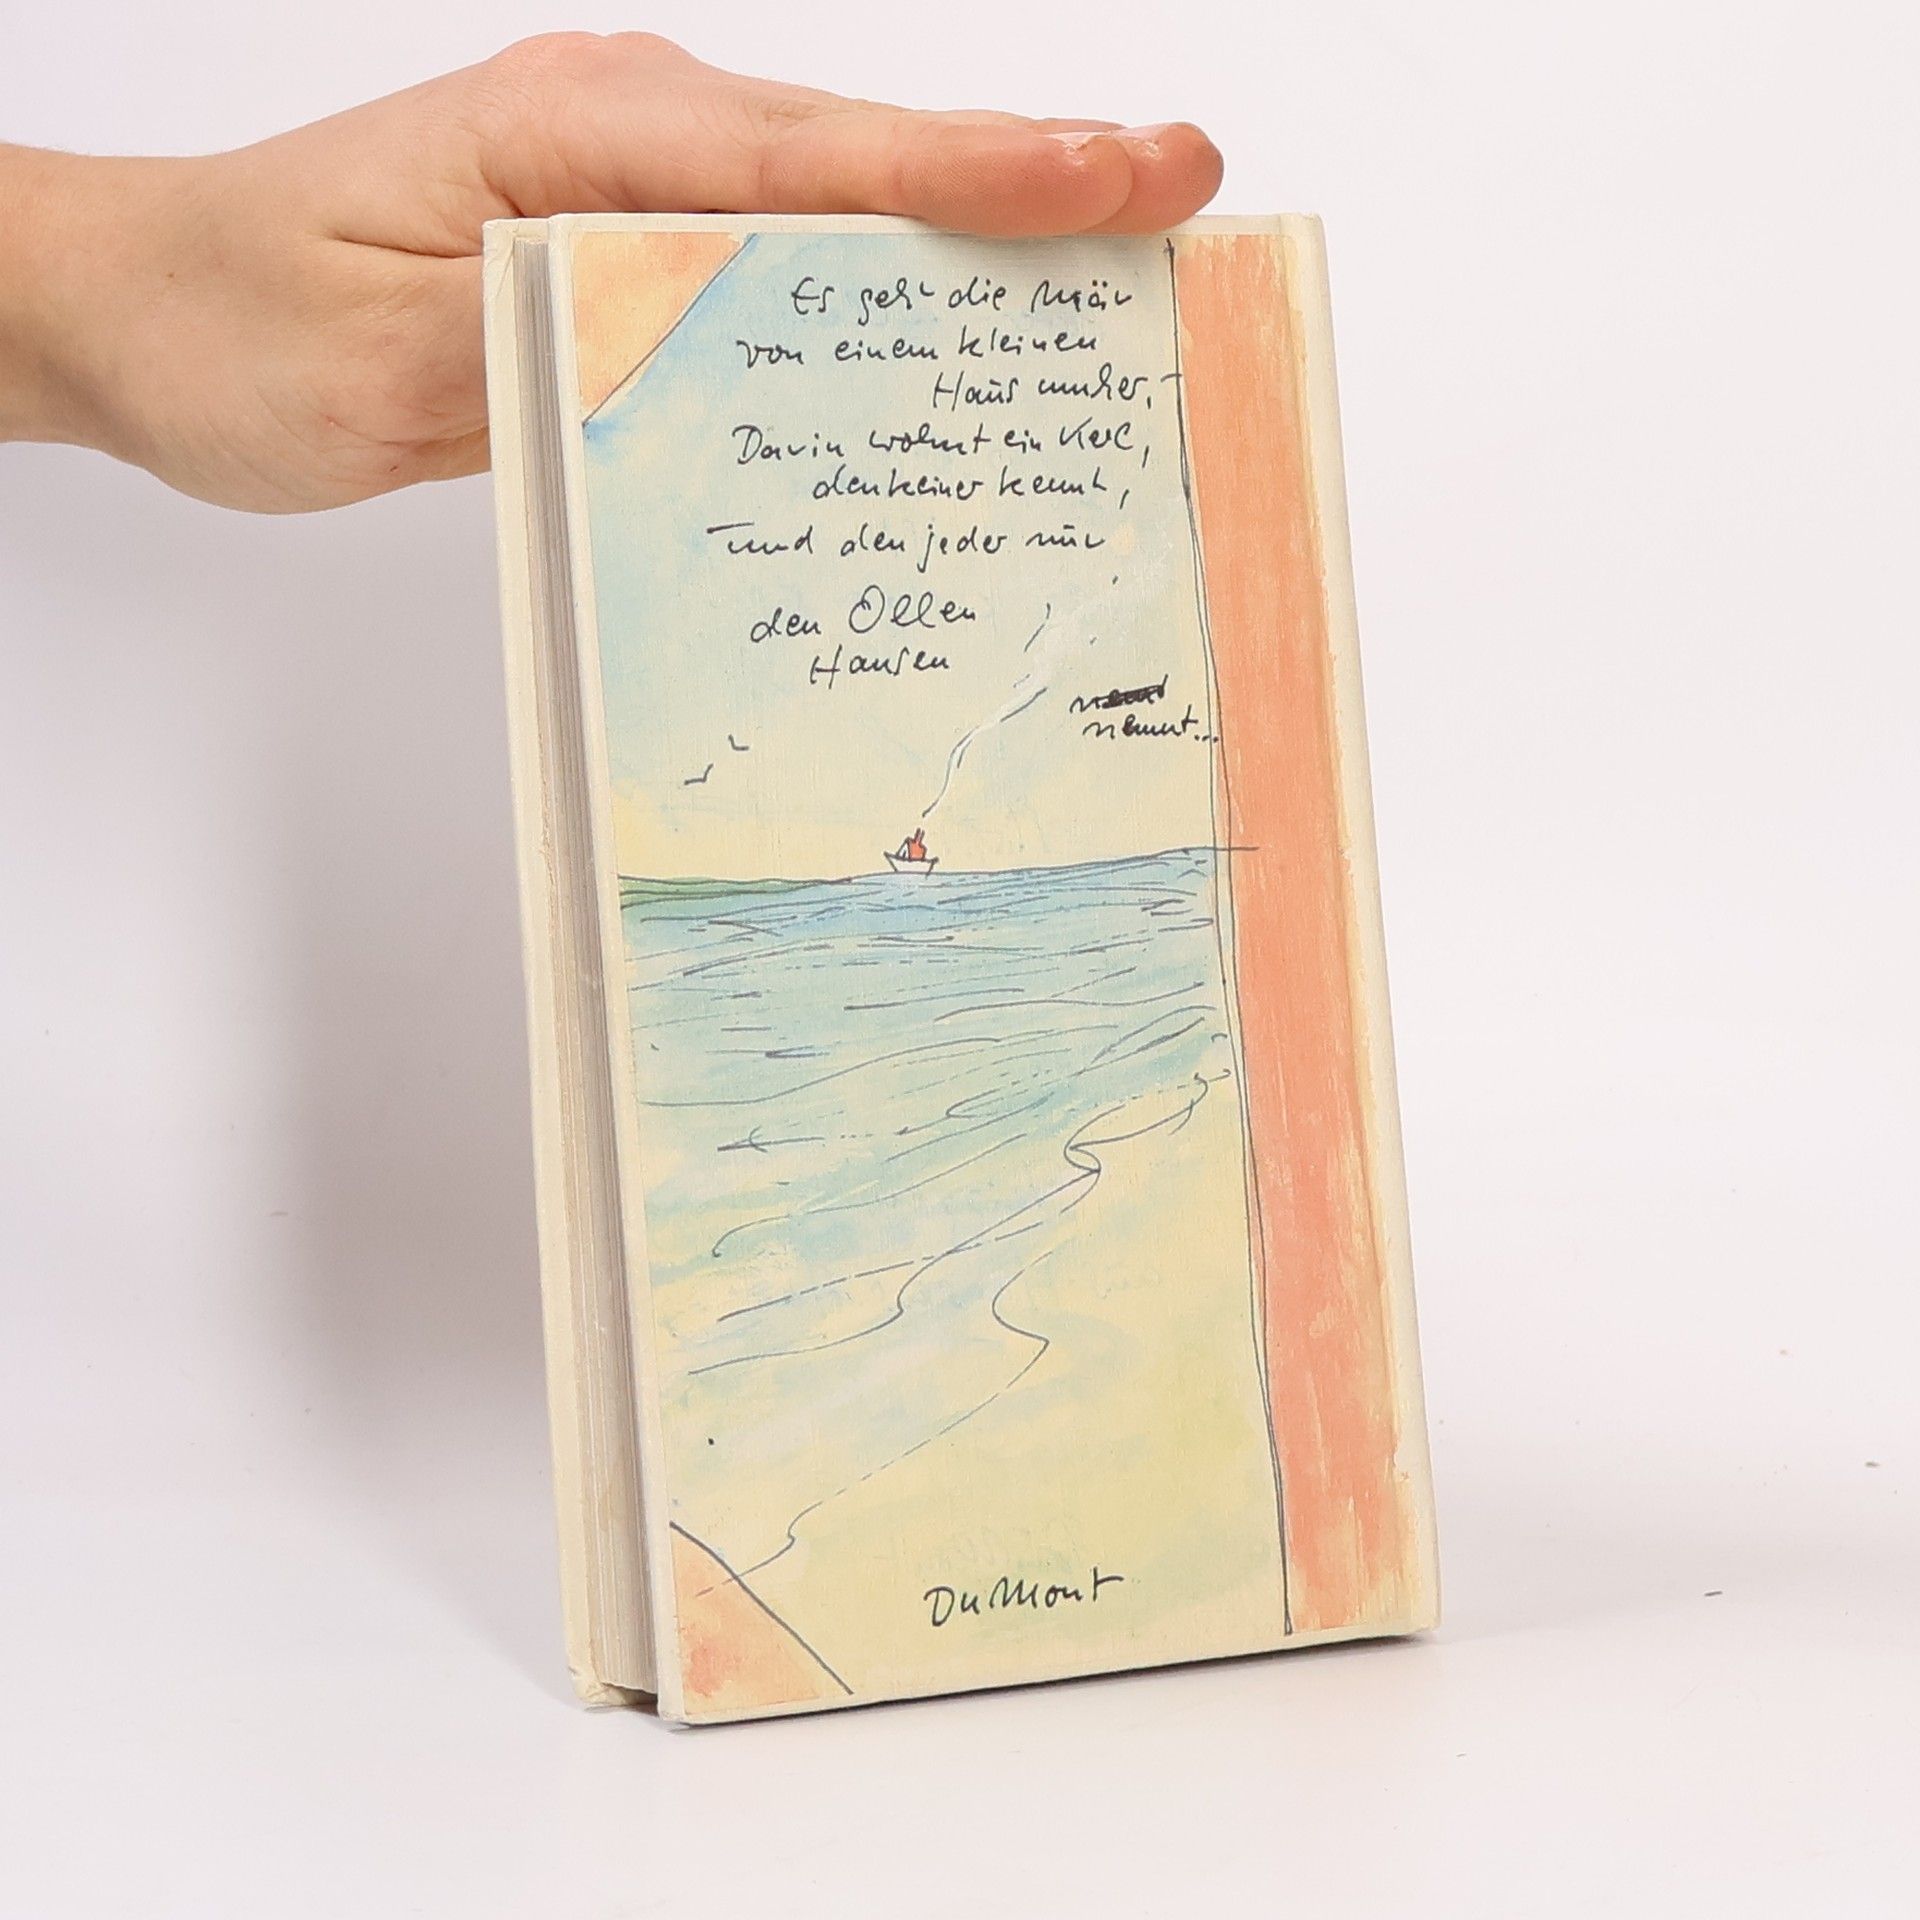 Es geht die Mär
von einem kleinen
Haus umher,
Darin wohnt ein Kerl,
den keiner kennt,
und den jeder nur
den Ollen
Hansen
nennt...
DuMont